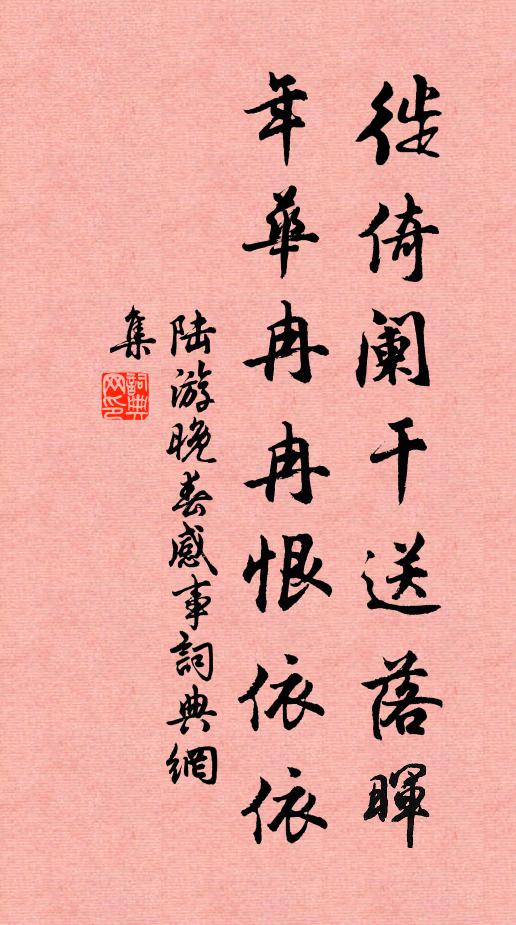 徙倚阑干送落暉
年華冉冉恨依依
陆游晚春感事詞典網
集
詞典
网印